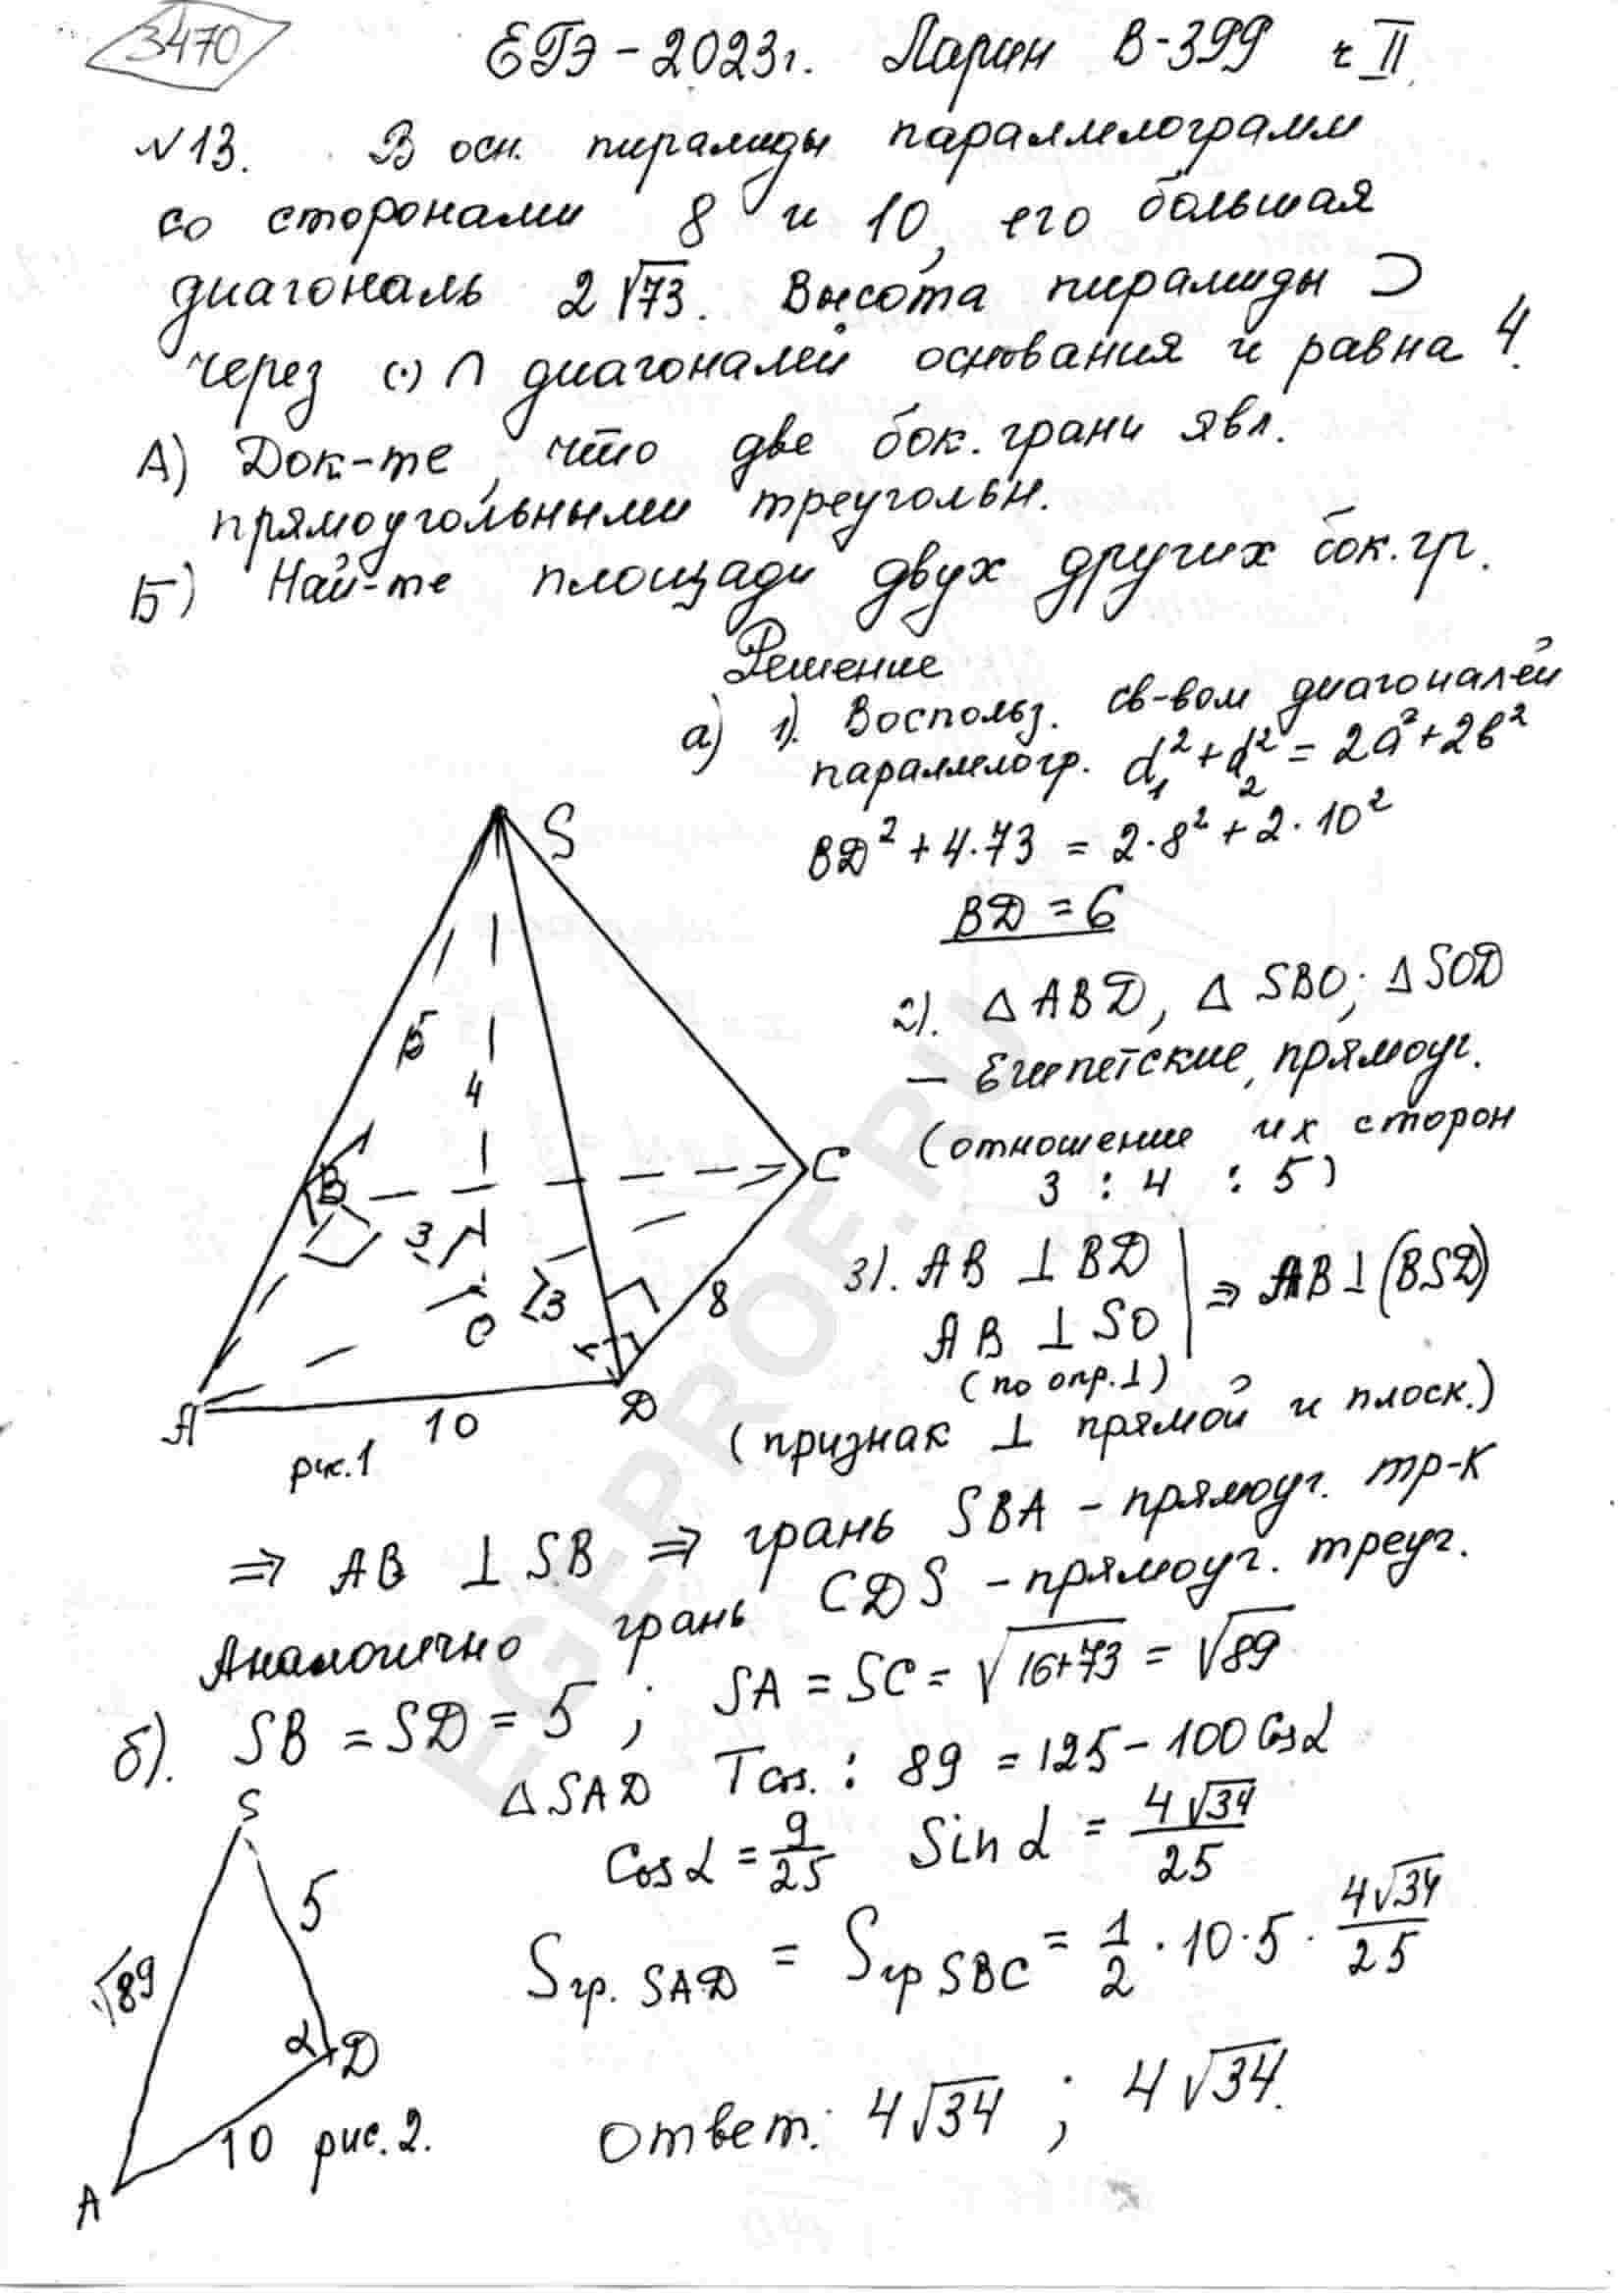 3470
ЕГЭ-2023г. Ларин В-399 ч II.
№13. В осн. пирамиды параллелограмм
со сторонами 8 и 10, его большая
диагональ 2√73. Высота пирамиды ⊃
через (·) ∩ диагоналей основания и равна 4.
А) Док-те, что две бок. грани явл.
прямоугольными треугольн.
Б) Най-те площади двух других бок. гр.
Решение
а) 1). Воспольз. св-вом диагоналей
параллелогр. d₁² + d₂² = 2a² + 2b²
BD² + 4·73 = 2·8² + 2·10²
BD = 6
2). △ ABD, △ SBO; △ SOD
— Египетские, прямоуг.
(отношение их сторон
3 : 4 : 5)
3). AB ⊥ BD | ⇒ AB ⊥ (BSD)
AB ⊥ SO
(по опр. ⊥)
(признак ⊥ прямой и плоск.)
S
5
4
B
C
3
O
3
8
A
10
D
рис.1
⇒ AB ⊥ SB ⇒ грань SBA - прямоуг. тр-к
Аналогично грань CDS - прямоуг. треуг.
б). SB = SD = 5 ; SA = SC = √16+73 = √89
△ SAD Tcos. : 89 = 125 - 100 Cosα
Cosα = 9/25 Sinα = 4√34/25
Sгр. SAD = Sгр SBC = 1/2 · 10 · 5 · 4√34/25
S
5
√89
α D
10 рис.2.
A
ответ: 4√34 ; 4√34.
EGEPROF.RU